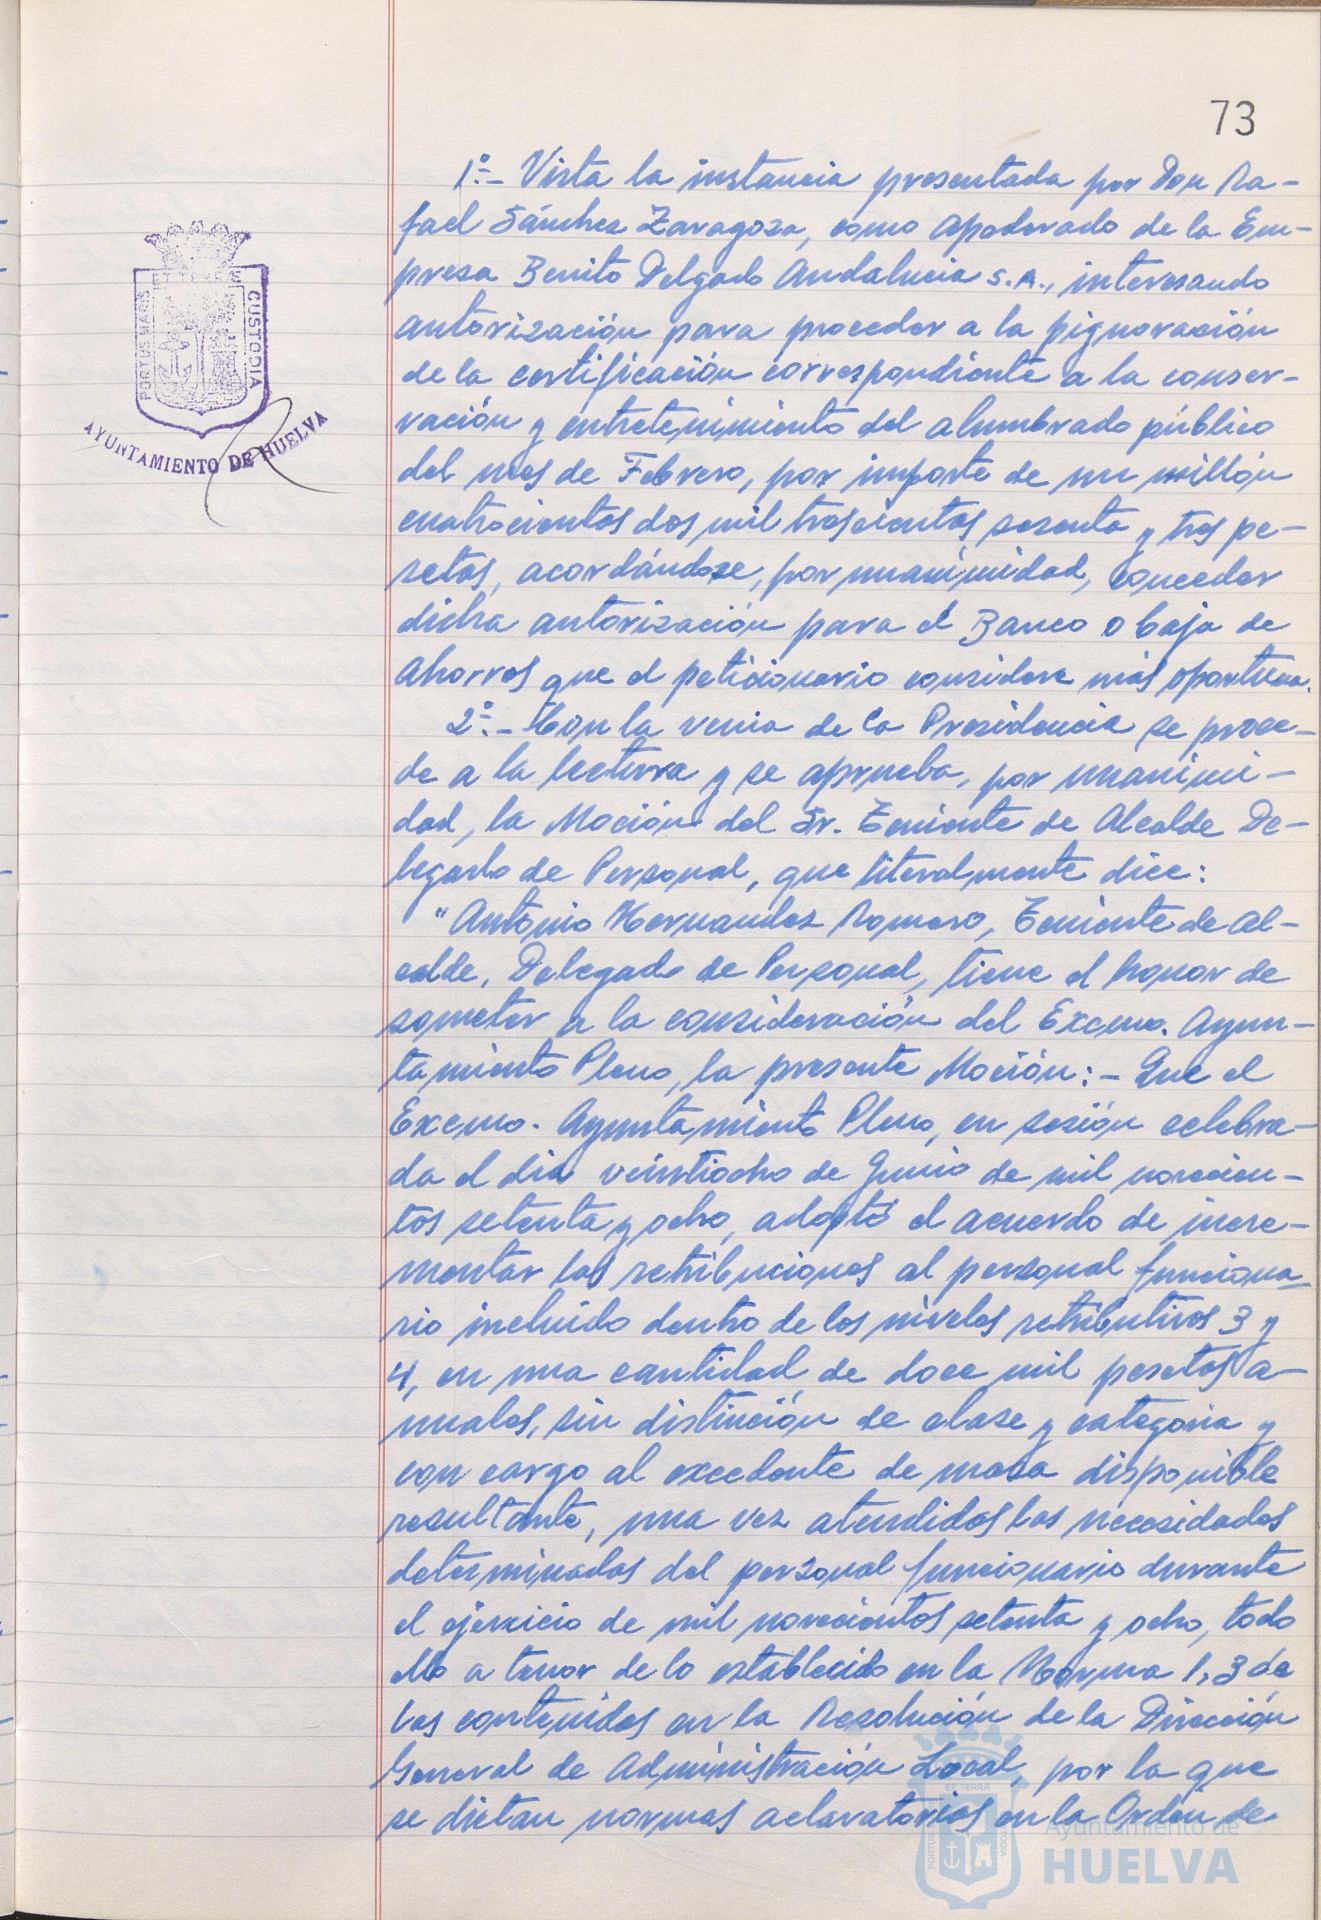 73
1º.- Vista la instancia presentada por Don Ra-
fael Sánchez Zaragoza, como apoderado de la Em-
presa Benito Delgado Andalucia S.A., interesando
autorización para proceder a la pignoración
de la certificación correspondiente a la conser-
vación y entretenimiento del alumbrado público
del mes de Febrero, por importe de un millón
cuatrocientas dos mil trescientas sesenta y tres pe-
setas, acordándose, por unanimidad, conceder
dicha autorización para el Banco o Caja de
Ahorros que el peticionario considere más oportuna.
2º.- Con la venia de la Presidencia se proce-
de a la lectura y se aprueba, por unanimi-
dad, la Moción del Sr. Teniente de Alcalde De-
legado de Personal, que literalmente dice:
"Antonio Hernandez Romero, Teniente de Al-
calde, Delegado de Personal, tiene el honor de
someter a la consideración del Excmo. Ayun-
tamiento Pleno, la presente Moción:- Que el
Excmo. Ayuntamiento Pleno, en sesión celebra-
da el dia veintiocho de Junio de mil novecien-
tos setenta y ocho, adoptó el acuerdo de incre-
mentar las retribuciones al personal funciona-
rio incluido dentro de los niveles retributivos 3 y
4, en una cantidad de doce mil pesetas a-
nuales, sin distinción de clase y categoria y
con cargo al excedente de masa disponible
resultante, una vez atendidas las necesidades
determinadas del personal funcionario durante
el ejercicio de mil novecientos setenta y ocho, todo
ello a tenor de lo establecido en la Norma 1,3 de
las contenidas en la Resolución de la Dirección
General de Administración Local, por la que
se dictan normas aclaratorias en la Orden de
PORTUS MARIS
ET TERRAE
CUSTODIA
AYUNTAMIENTO DE HUELVA
Ayuntamiento de
HUELVA